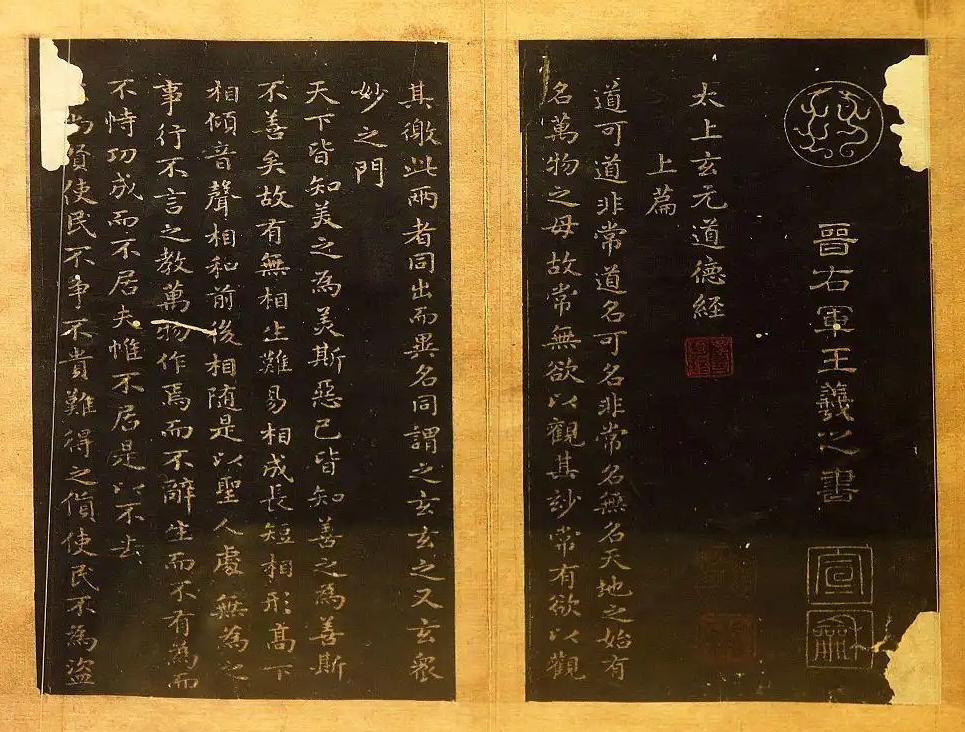 晉右軍王羲之書
宣
龢
太上玄元道德經
上篇
道可道非常道名可名非常名無名天地之始有
名萬物之母故常無欲以觀其妙常有欲以觀
其徼此兩者同出而異名同謂之玄玄之又玄眾
妙之門
天下皆知美之為美斯惡已皆知善之為善斯
不善矣故有無相生難易相成長短相形高下
相傾音聲相和前後相隨是以聖人處無為之
事行不言之教萬物作焉而不辭生而不有為而
不恃功成而不居夫惟不居是以不去
尚賢使民不爭不貴難得之貨使民不為盜